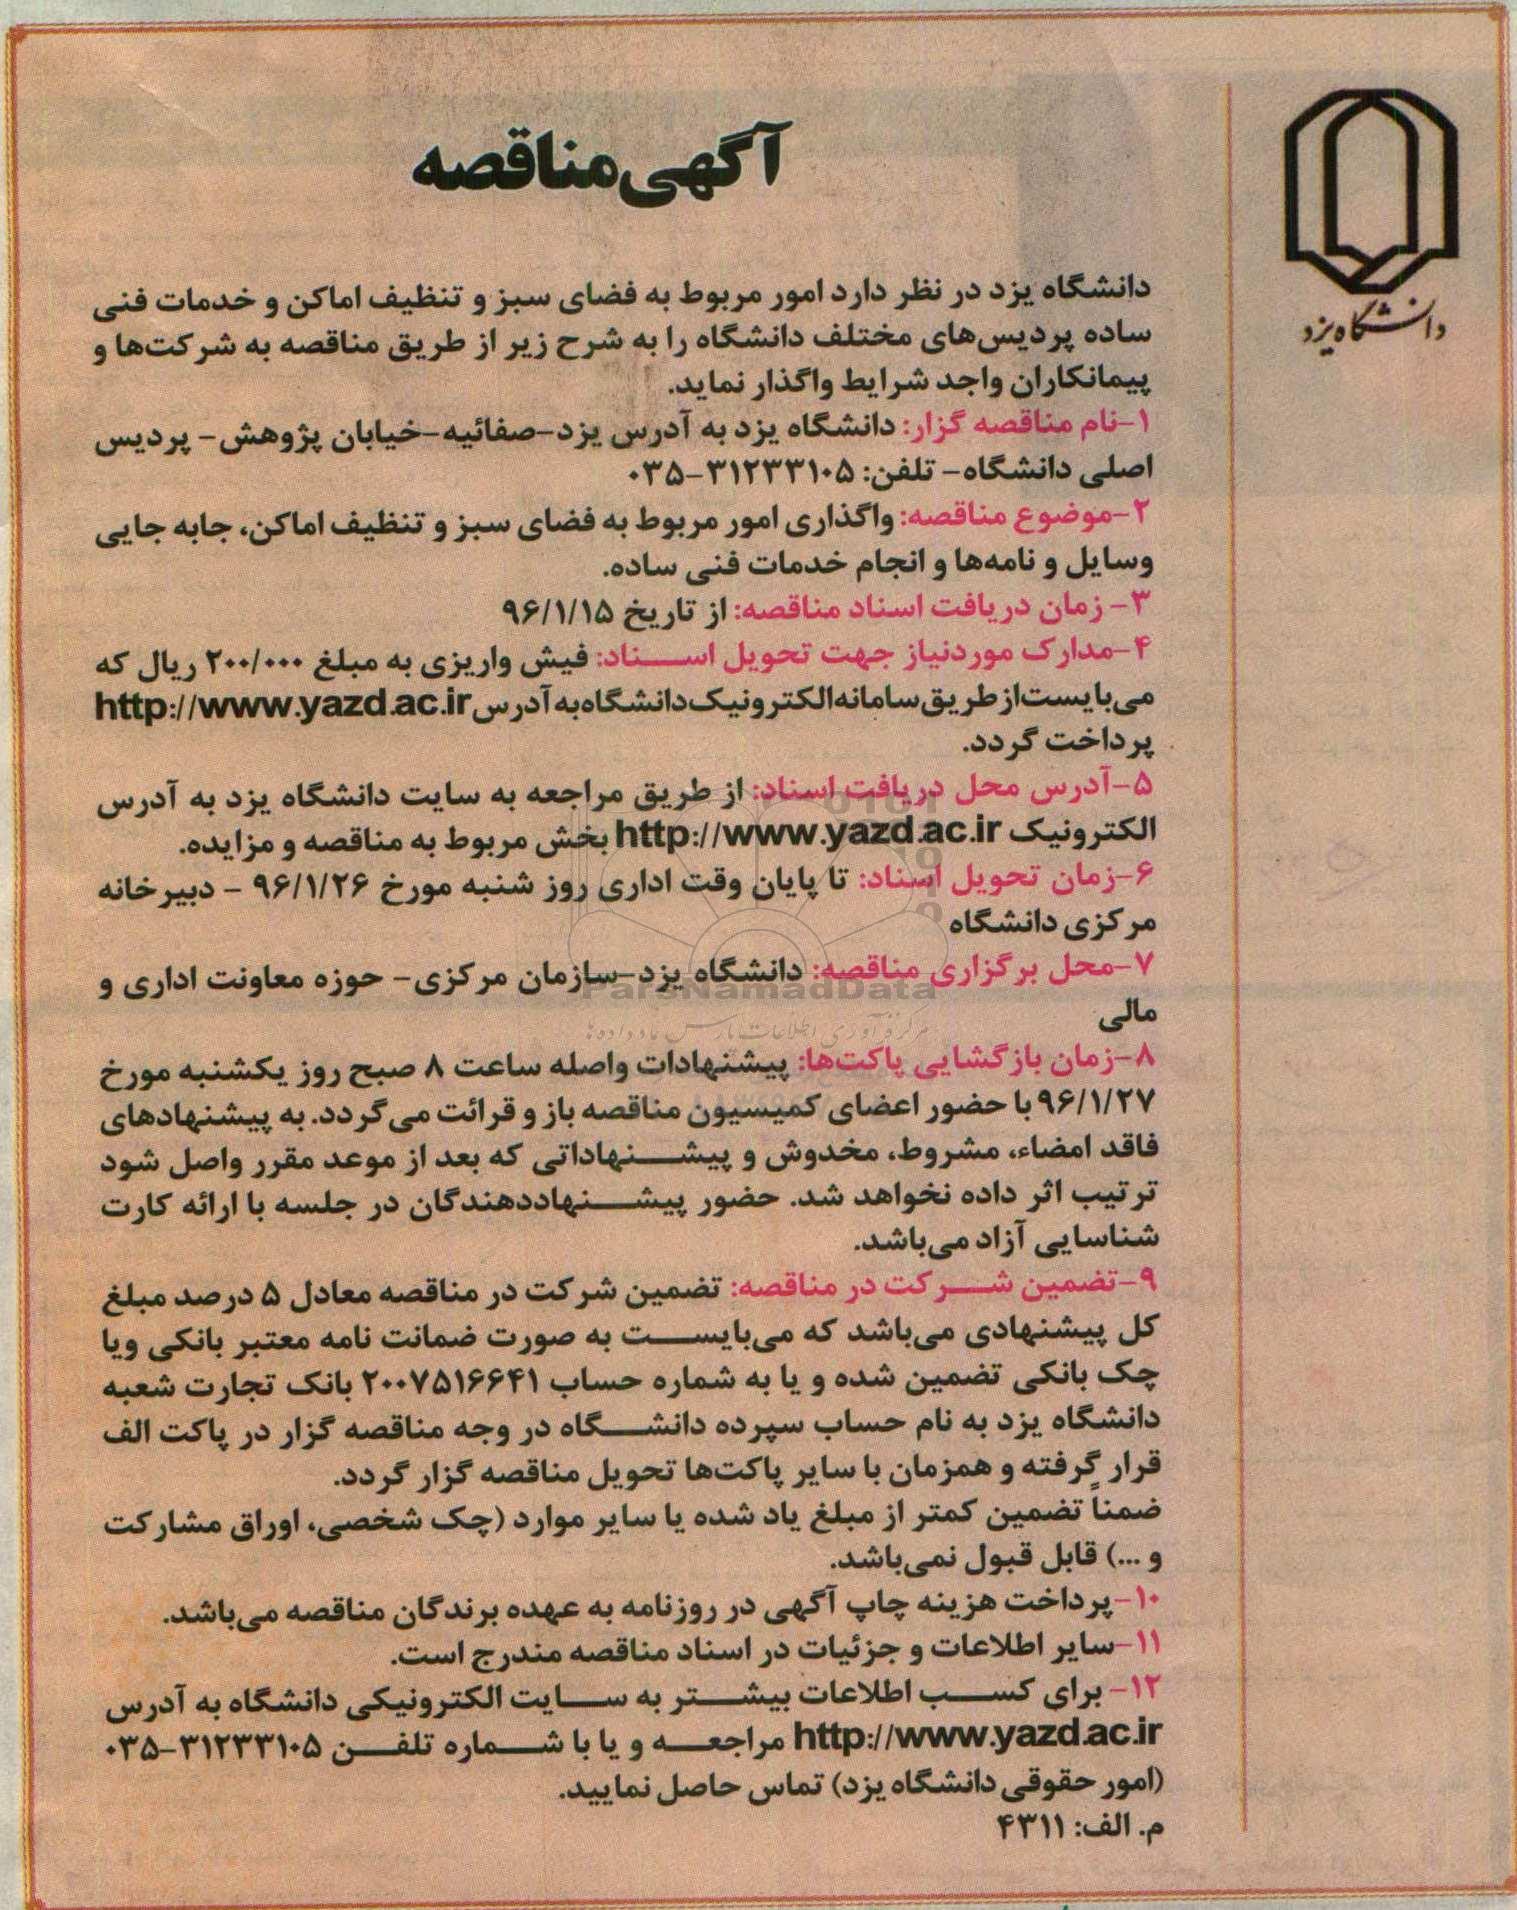 دانشگاه یزد
آگهی مناقصه
دانشگاه یزد در نظر دارد امور مربوط به فضای سبز و تنظیف اماکن و خدمات فنی
ساده پردیس‌های مختلف دانشگاه را به شرح زیر از طریق مناقصه به شرکت‌ها و
پیمانکاران واجد شرایط واگذار نماید.
۱-نام مناقصه گزار: دانشگاه یزد به آدرس یزد-صفائیه-خیابان پژوهش- پردیس
اصلی دانشگاه- تلفن: ۳۱۲۳۳۱۰۵-۰۳۵
۲-موضوع مناقصه: واگذاری امور مربوط به فضای سبز و تنظیف اماکن، جابه جایی
وسایل و نامه‌ها و انجام خدمات فنی ساده.
۳- زمان دریافت اسناد مناقصه: از تاریخ ۹۶/۱/۱۵
۴-مدارک موردنیاز جهت تحویل اسناد: فیش واریزی به مبلغ ۲۰۰/۰۰۰ ریال که
می‌بایست از طریق سامانه الکترونیک دانشگاه به آدرس http://www.yazd.ac.ir
پرداخت گردد.
۵-آدرس محل دریافت اسناد: از طریق مراجعه به سایت دانشگاه یزد به آدرس
الکترونیک http://www.yazd.ac.ir بخش مربوط به مناقصه و مزایده.
۶-زمان تحویل اسناد: تا پایان وقت اداری روز شنبه مورخ ۹۶/۱/۲۶ - دبیرخانه
مرکزی دانشگاه
۷-محل برگزاری مناقصه: دانشگاه یزد-سازمان مرکزی- حوزه معاونت اداری و
ParsNamadData
مالی
مرکز فرآوری اطلاعات پارس نماد داده‌ها
۸-زمان بازگشایی پاکت‌ها: پیشنهادات واصله ساعت ۸ صبح روز یکشنبه مورخ
۹۶/۱/۲۷ با حضور اعضای کمیسیون مناقصه باز و قرائت می‌گردد. به پیشنهادهای
فاقد امضاء، مشروط، مخدوش و پیشنهاداتی که بعد از موعد مقرر واصل شود
ترتیب اثر داده نخواهد شد. حضور پیشنهاددهندگان در جلسه با ارائه کارت
شناسایی آزاد می‌باشد.
۹-تضمین شرکت در مناقصه: تضمین شرکت در مناقصه معادل ۵ درصد مبلغ
کل پیشنهادی می‌باشد که می‌بایست به صورت ضمانت نامه معتبر بانکی ویا
چک بانکی تضمین شده و یا به شماره حساب ۲۰۰۷۵۱۶۶۴۱ بانک تجارت شعبه
دانشگاه یزد به نام حساب سپرده دانشگاه در وجه مناقصه گزار در پاکت الف
قرار گرفته و همزمان با سایر پاکت‌ها تحویل مناقصه گزار گردد.
ضمناً تضمین کمتر از مبلغ یاد شده یا سایر موارد (چک شخصی، اوراق مشارکت
و ...) قابل قبول نمی‌باشد.
۱۰-پرداخت هزینه چاپ آگهی در روزنامه به عهده برندگان مناقصه می‌باشد.
۱۱-سایر اطلاعات و جزئیات در اسناد مناقصه مندرج است.
۱۲- برای کسب اطلاعات بیشتر به سایت الکترونیکی دانشگاه به آدرس
http://www.yazd.ac.ir مراجعه و یا با شماره تلفن ۳۱۲۳۳۱۰۵-۰۳۵
(امور حقوقی دانشگاه یزد) تماس حاصل نمایید.
م. الف: ۴۳۱۱